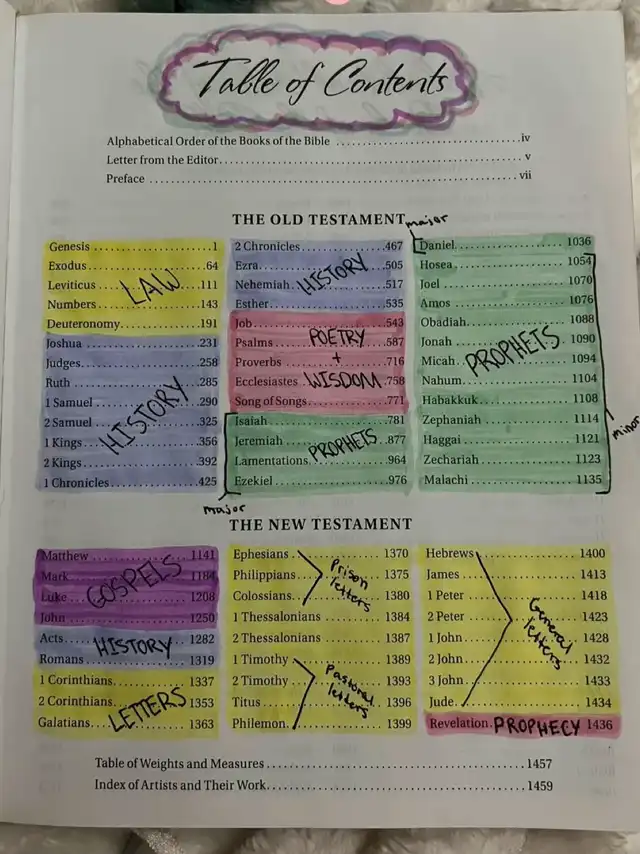 Table of Contents
Alphabetical Order of the Books of the Bible ........ iv
Letter from the Editor ........ v
Preface ........ vii
THE OLD TESTAMENT
major
Genesis ........ 1
Exodus ........ 64
Leviticus ........ 111
Numbers ........ 143
Deuteronomy ........ 191
LAW
Joshua ........ 231
Judges ........ 258
Ruth ........ 285
1 Samuel ........ 290
2 Samuel ........ 325
1 Kings ........ 356
2 Kings ........ 392
1 Chronicles ........ 425
HISTORY
2 Chronicles ........ 467
Ezra ........ 505
Nehemiah ........ 517
Esther ........ 535
HISTORY
Job ........ 543
Psalms ........ 587
Proverbs ........ 716
Ecclesiastes ........ 758
Song of Songs ........ 771
POETRY
+
WISDOM
Isaiah ........ 781
Jeremiah ........ 877
Lamentations ........ 964
Ezekiel ........ 976
PROPHETS
major
Daniel ........ 1036
Hosea ........ 1054
Joel ........ 1070
Amos ........ 1076
Obadiah ........ 1088
Jonah ........ 1090
Micah ........ 1094
Nahum ........ 1104
Habakkuk ........ 1108
Zephaniah ........ 1114
Haggai ........ 1121
Zechariah ........ 1123
Malachi ........ 1135
PROPHETS
minor
THE NEW TESTAMENT
Matthew ........ 1141
Mark ........ 1184
Luke ........ 1208
John ........ 1250
GOSPELS
Acts ........ 1282
Romans ........ 1319
HISTORY
1 Corinthians ........ 1337
2 Corinthians ........ 1353
Galatians ........ 1363
LETTERS
Ephesians ........ 1370
Philippians ........ 1375
Colossians ........ 1380
Prison
letters
1 Thessalonians ........ 1384
2 Thessalonians ........ 1387
1 Timothy ........ 1389
2 Timothy ........ 1393
Titus ........ 1396
Philemon ........ 1399
Pastoral
letters
Hebrews ........ 1400
James ........ 1413
1 Peter ........ 1418
2 Peter ........ 1423
1 John ........ 1428
2 John ........ 1432
3 John ........ 1433
Jude ........ 1434
General
letters
Revelation ........ 1436
PROPHECY
Table of Weights and Measures ........ 1457
Index of Artists and Their Work ........ 1459